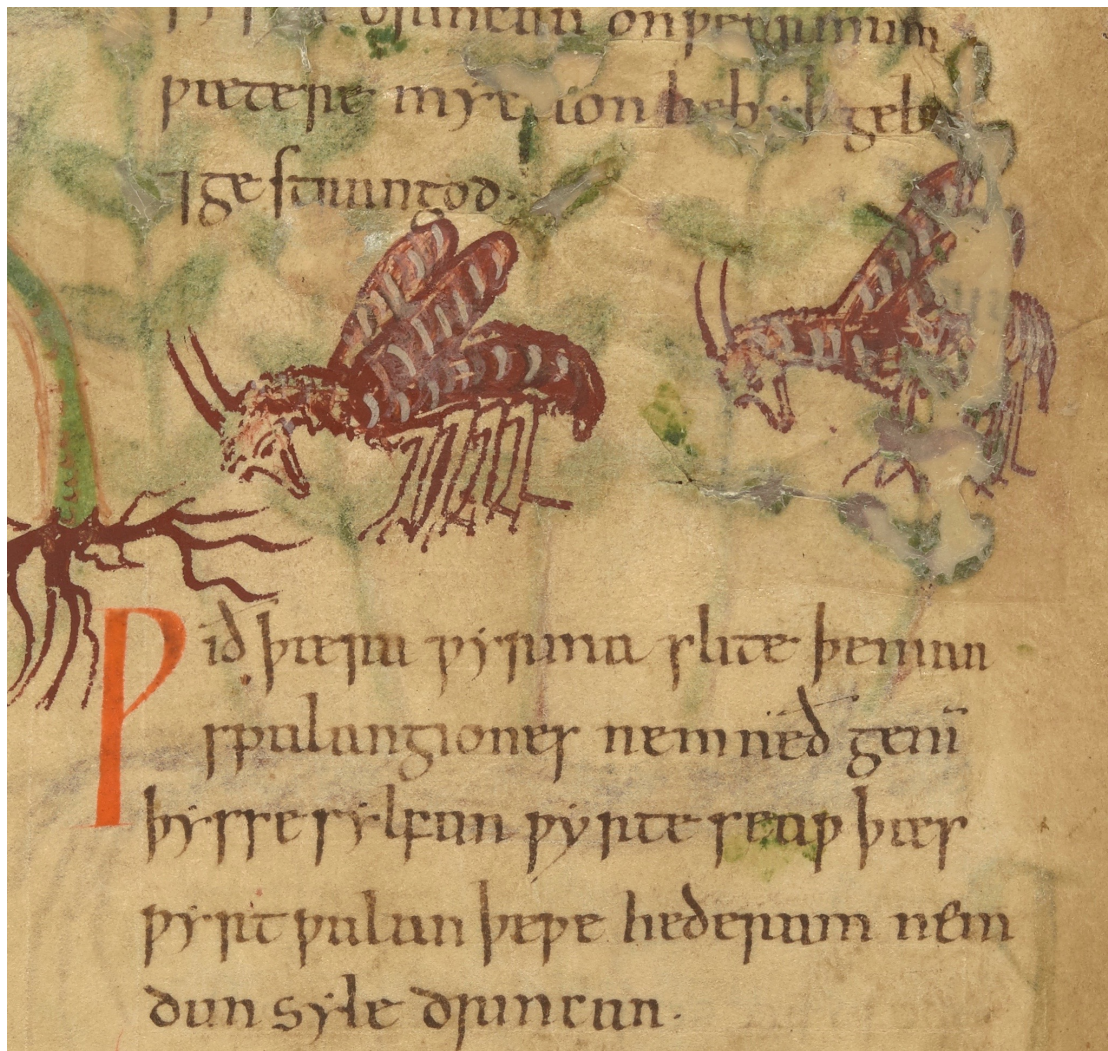 drincan onƿearmum
ƿætere hebyþ
⁊ gestrangod·
Ƿið þæra ƿyrma slite þeman
spalangiones nemneð genī
þysse sylfan ƿyrte seaƿ þæs
ƿyrtƿalan þeƿe hederam nem
dun syle drincan·